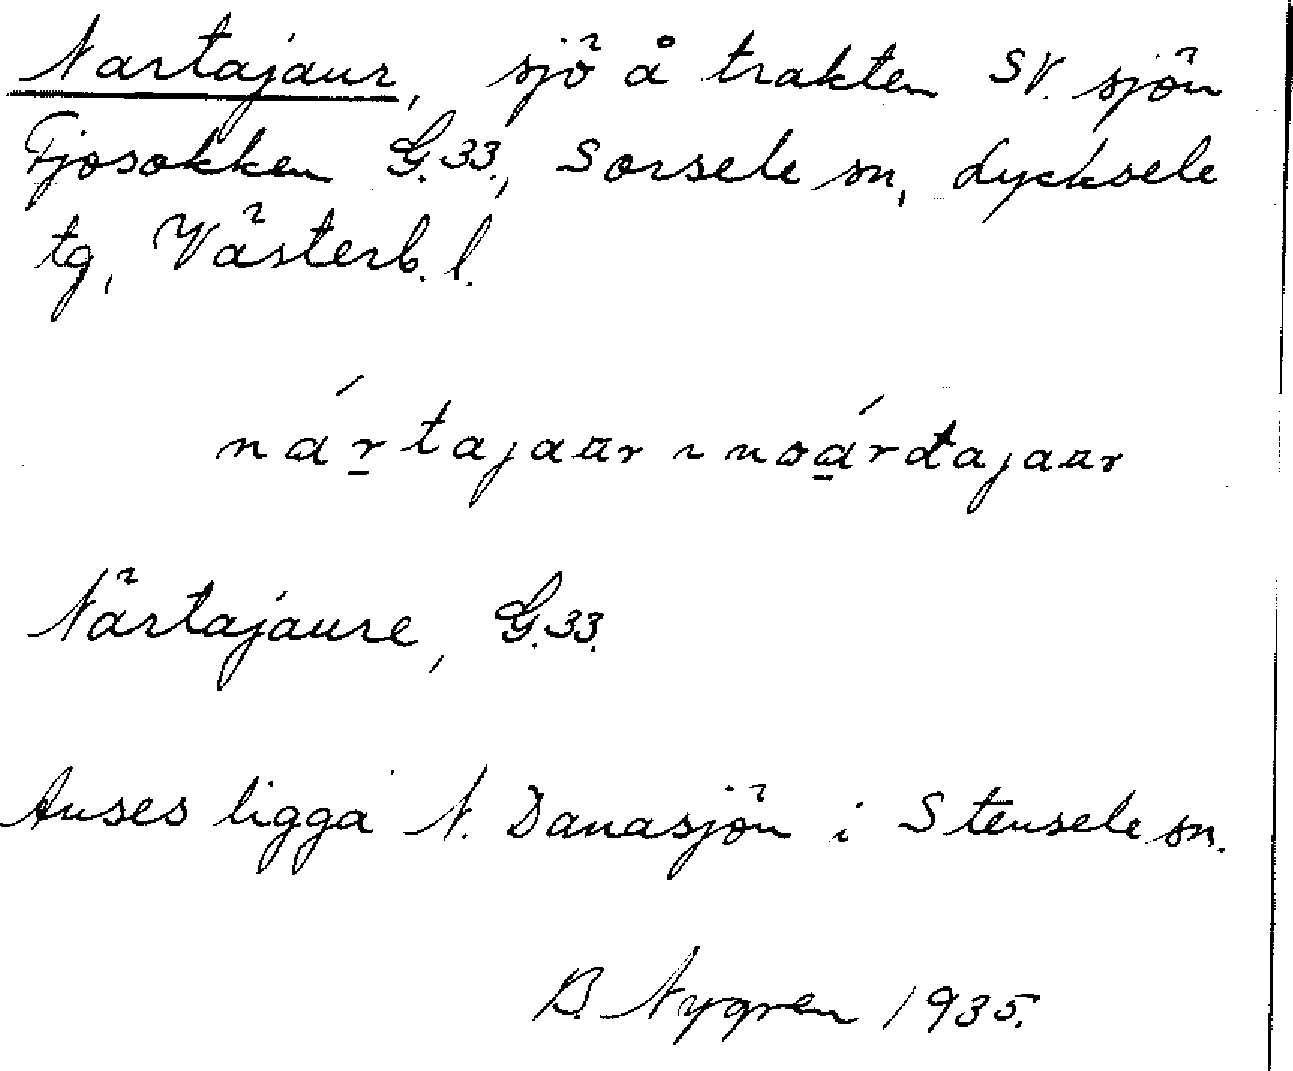 Nartajaur, sjö å trakten SV. sjön
Fjosokken G.33., Sorsele sn, Lycksele
tg, Västerb. l.
nártajaur ~ noárdajaur
Närtajaure, G.33.
Anses ligga N. Danasjön i Stensele sn.
B. Nygren 1935.